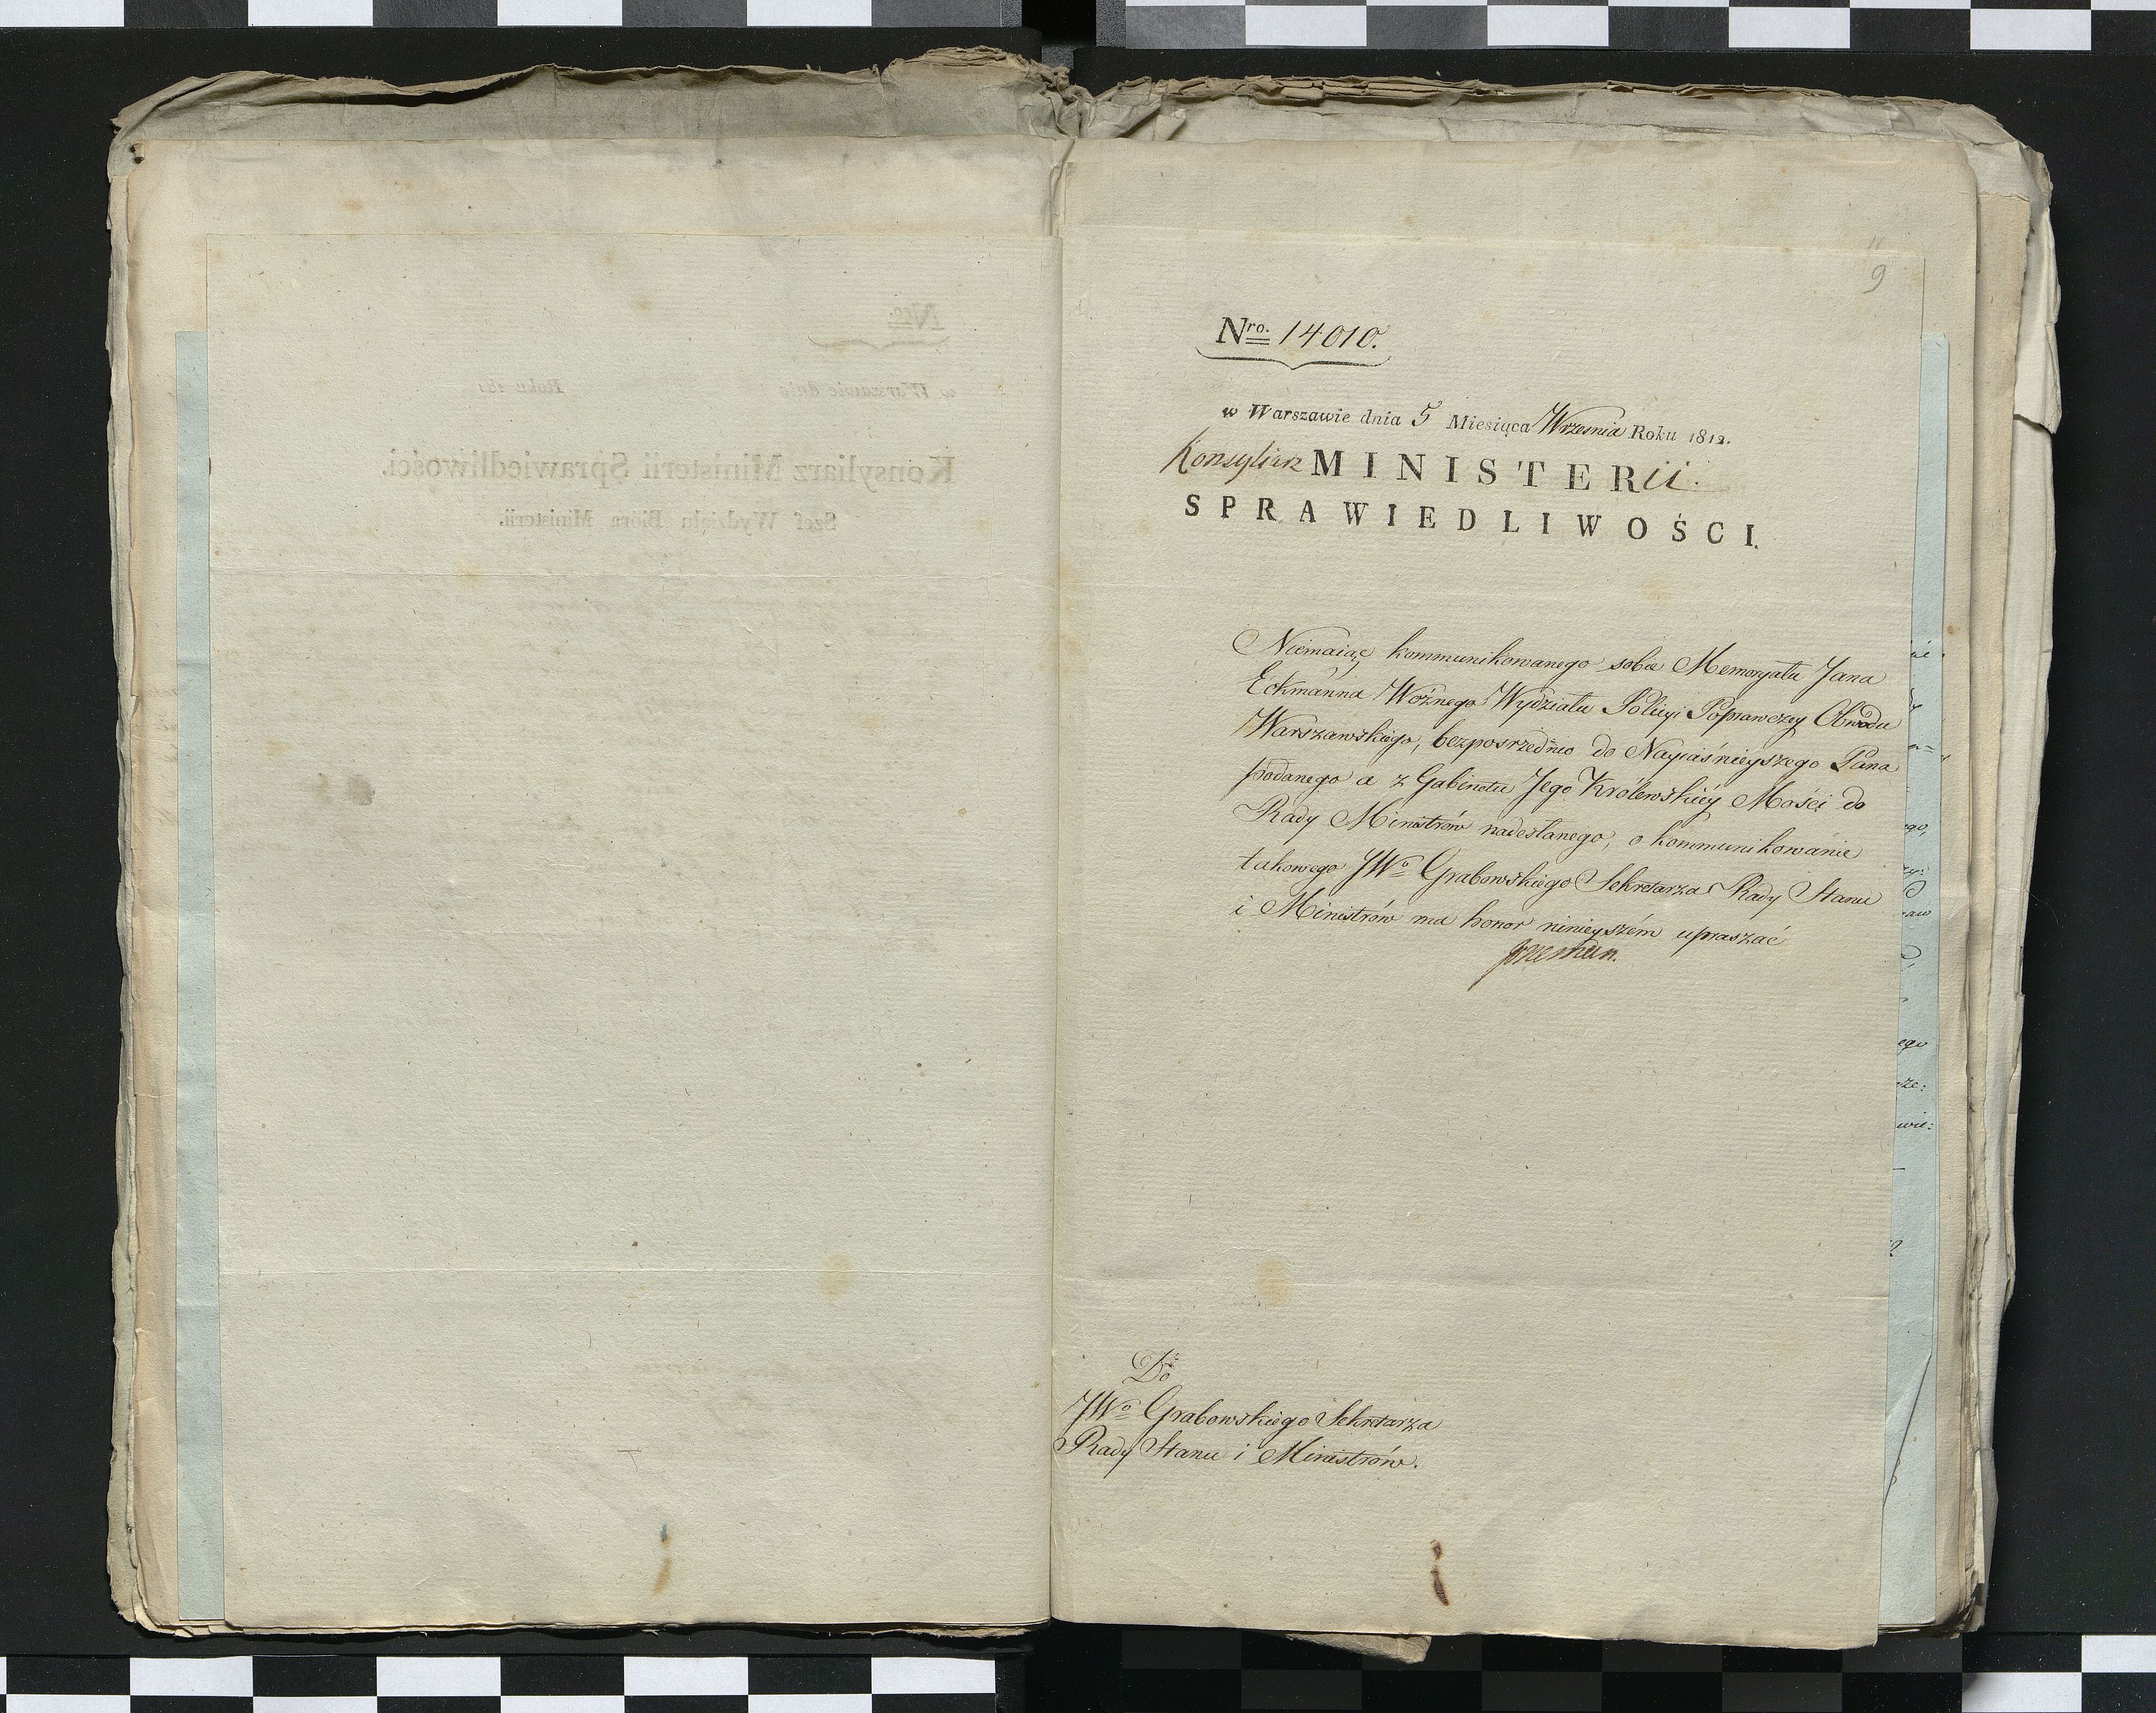 9
Nro. 14010.
w Warszawie dnia 5 Miesiąca Września Roku 1812.
Konsyliarz MINISTERii.
SPRAWIEDLIWOŚCI.
Niemaiąc kommunikowanego sobie Memoryału Jana
Eckmanna Woźnego Wydziału Policyi Poprawczey Obwodu
Warszawskiego, bezposrzednio do Nayiaśnieyszego Pana
podanego a z Gabinetu Jego Królewskiéy Mości do
Rady Ministrów nadesłanego, o kommunikowanie
takowego JWo Grabowskiego Sekretarza Rady Stanu
i Ministrów ma honor ninieyszém upraszać
Do
JWo Grabowskiego Sekretarza
Rady Stanu i Ministrów.
Nro.
w Warszawie dnia Roku 181
Konsyliarz Ministerii Sprawiedliwości.
Szef Wydziału Bióra Ministerii.